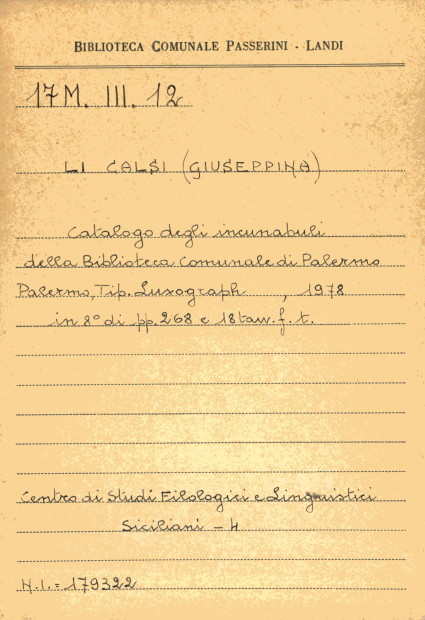 BIBLIOTECA COMUNALE PASSERINI - LANDI
17M. III. 12
LI CALSI (GIUSEPPINA)
Catalogo degli incunabuli
della Biblioteca Comunale di Palermo
Palermo, Tip. Luxograph , 1978
in 8° di pp. 268 e 18 tav. f. t.
Centro di Studi Filologici e Linguistici
Siciliani - 4
N.I. = 179322